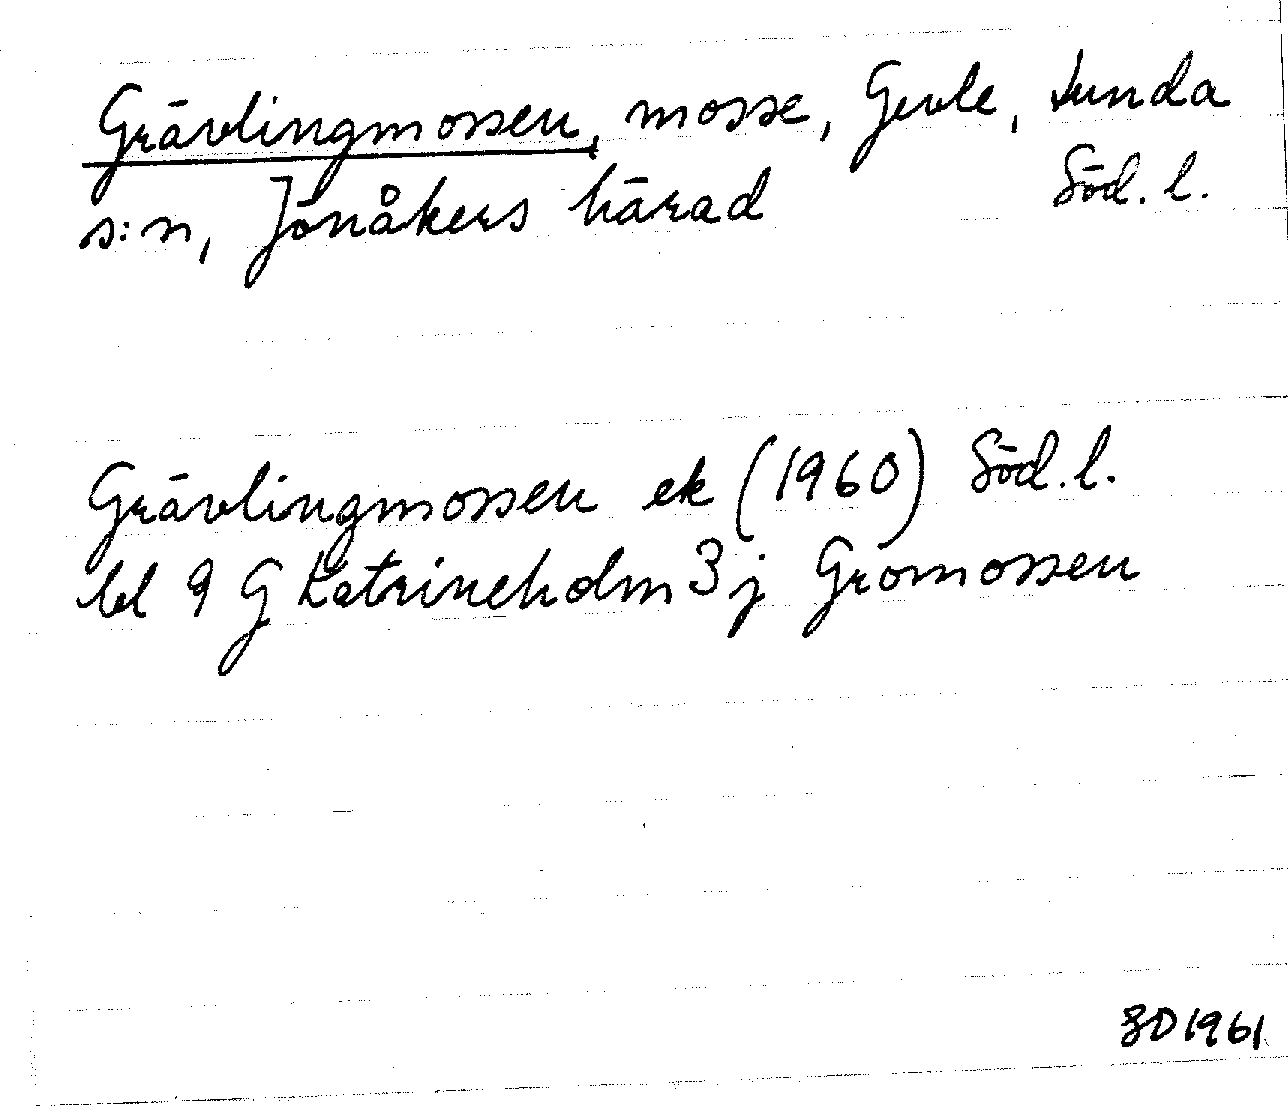 Grävlingmossen, mosse, Gevle, Lunda
s:n, Jönåkers härad Söd. l.
Grävlingmossen ek (1960) Söd. l.
bl 9 G Katrineholm 3 j Gromossen
GD 1961